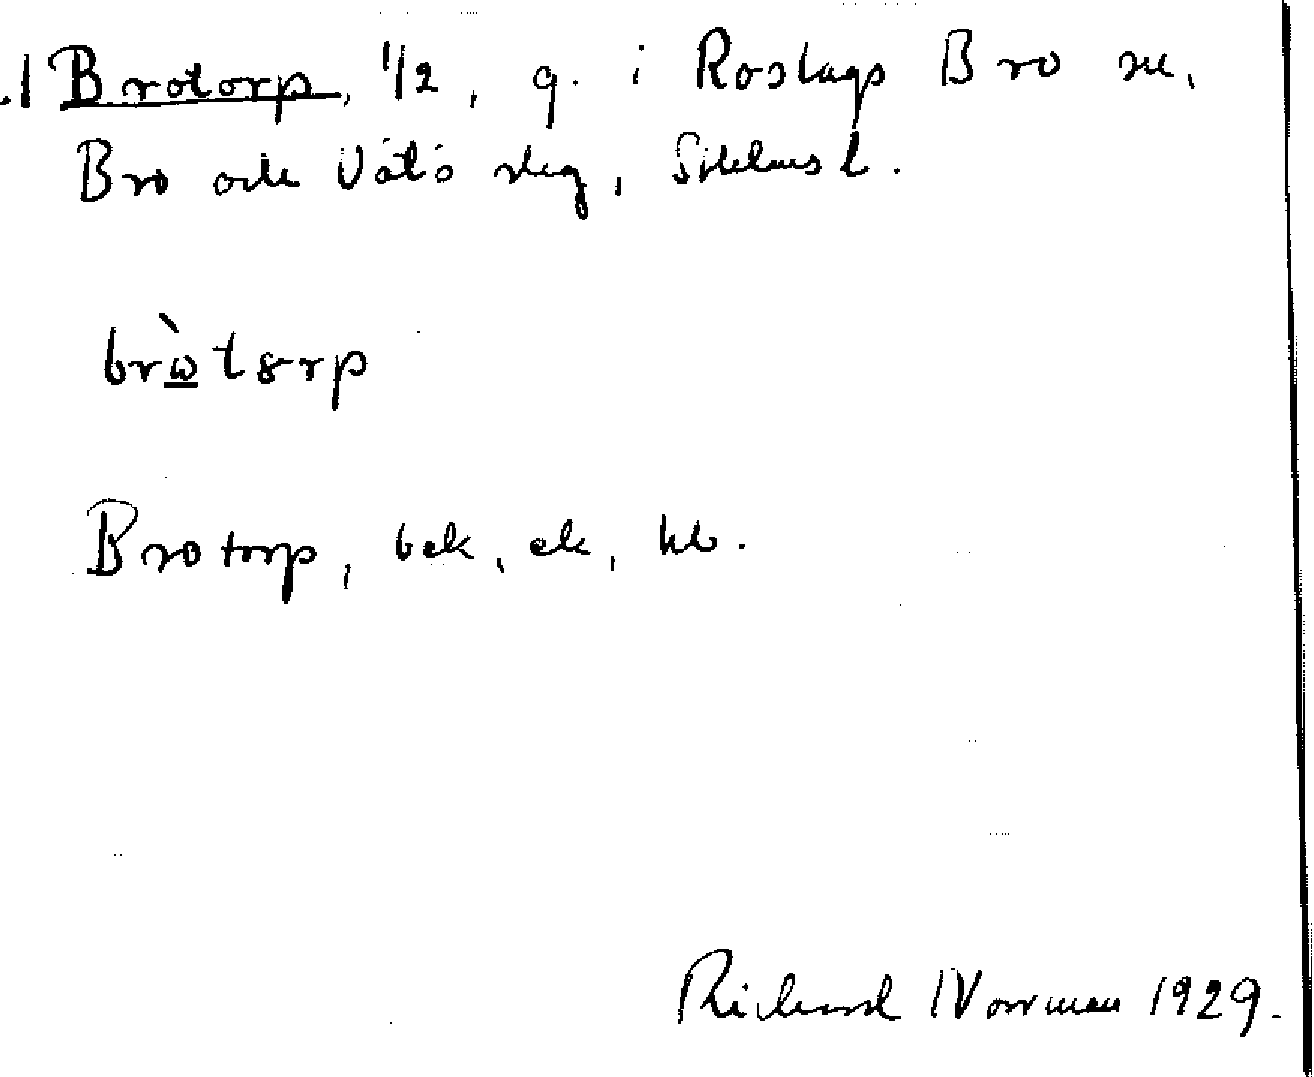 Brotorp, 1/2, g. i Roslags Bro sn,
Bro och Vätö skg, Sthlms l.
brὼtorp
Brotorp, bek, ek, kb.
Richard Norrman 1929.